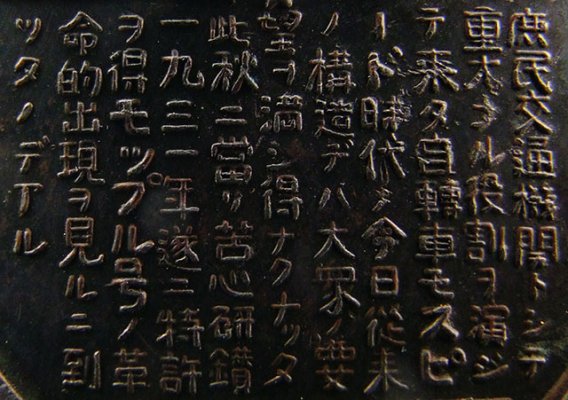 庶民交通機関トシテ
重大ナル役割ヲ演ジ
テ来タ自轉車モスピ
ード時代ノ今日従来
ノ構造デハ大衆ノ要
望ヲ満シ得ナクナッタ
此秋ニ當リ苦心研錯
一九三一年遂ニ特許
ヲ得モップル号ノ革
命的出現ヲ見ルニ到
ッタノデアル